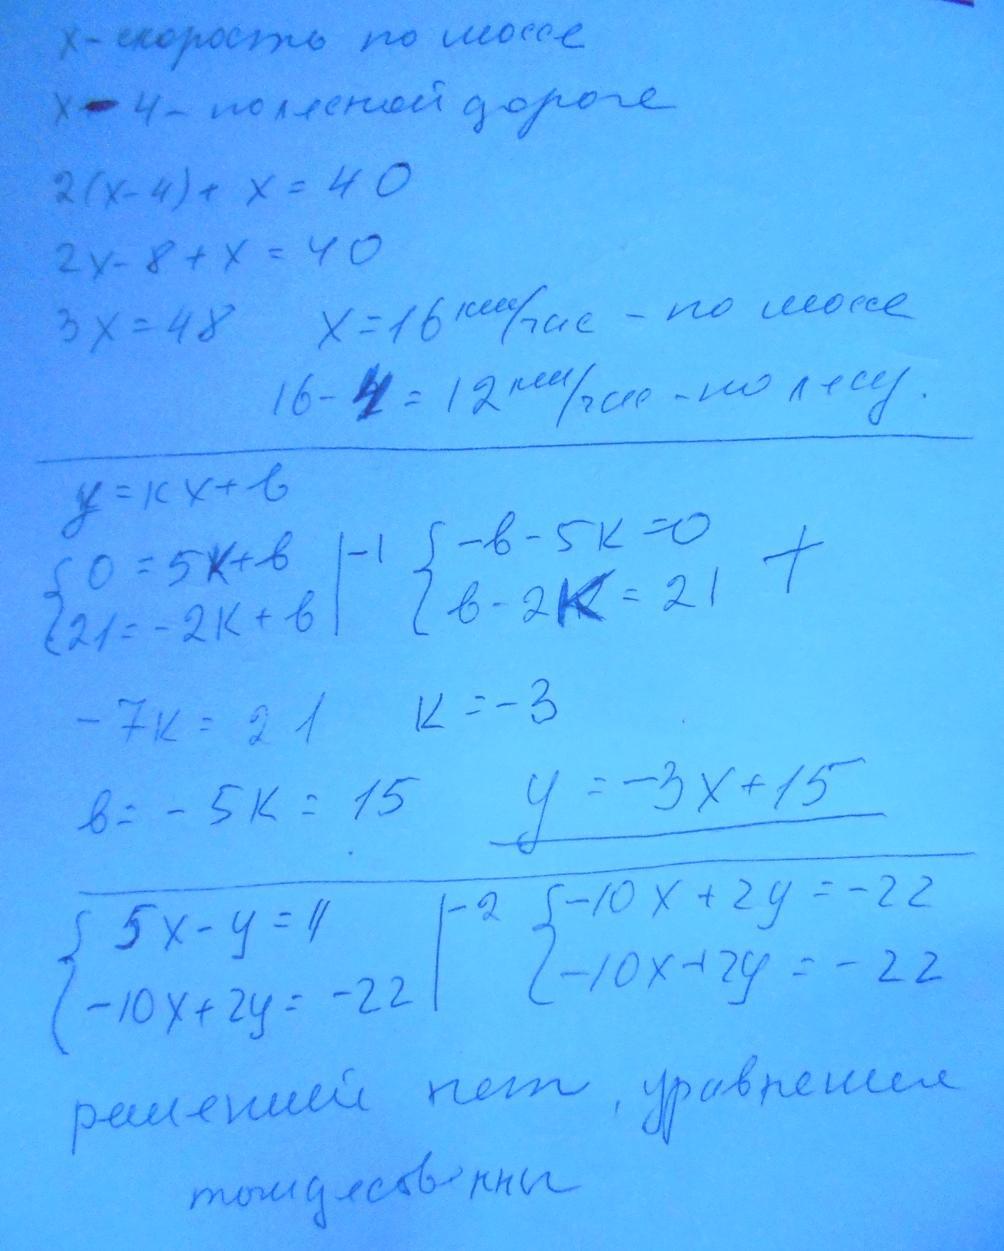 x - скорость по шоссе
x - 4 - по лесной дороге
2(x-4) + x = 40
2x - 8 + x = 40
3x = 48 x = 16 км/час - по шоссе
16 - 4 = 12 км/час - по лесу.
y = kx + b
{ 0 = 5k + b | -1 { -b - 5k = 0 +
{ 21 = -2k + b | { b - 2k = 21
-7k = 21 k = -3
b = -5k = 15 y = -3x + 15
{ 5x - y = 11 | -2 { -10x + 2y = -22
{ -10x + 2y = -22 | { -10x + 2y = -22
решений нет, уравнения
тождественны